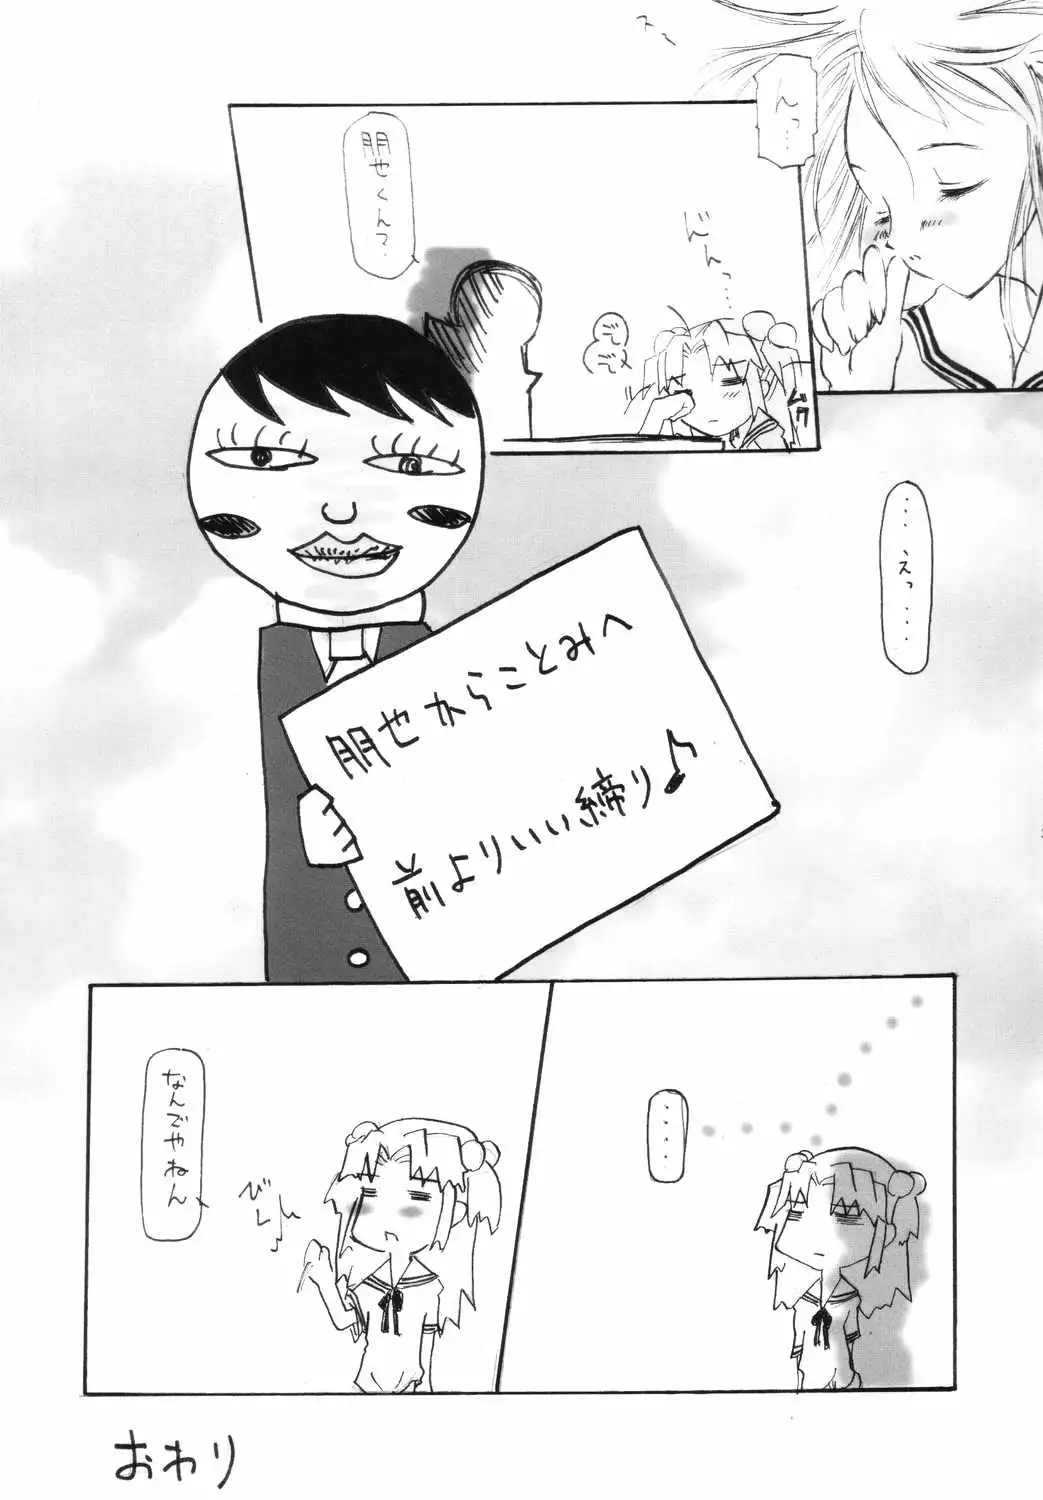 スー
んっ…
朋也くん?
じんっ…
ムク
……えっ……
朋也からことみへ
前よりいい締り♪
……
なんでやねん
びしっ
おわり